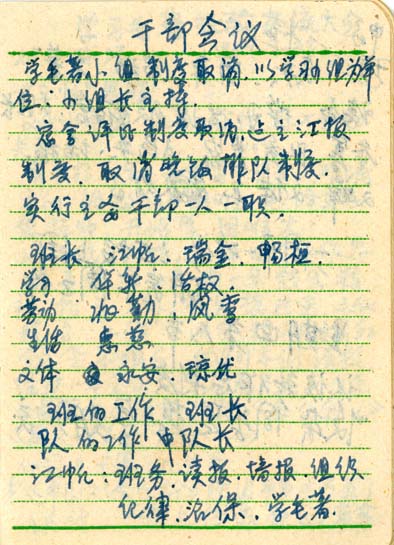 干部会议
学毛著小组制度取消，以学习小组为单
位：小组长主持．
宿舍评比制度取消，汇报
制度，取消晚饭排队制度．
实行主要干部一人一职．
班长 江帆．瑞金．畅桓．
学习 治权．
劳动 勤；凤雪
生活 惠慈
文体 永安．琼优
班的工作 班长
队的工作 中队长
江帆：班务．读报．墙报．组织
纪律．治保．学毛著．